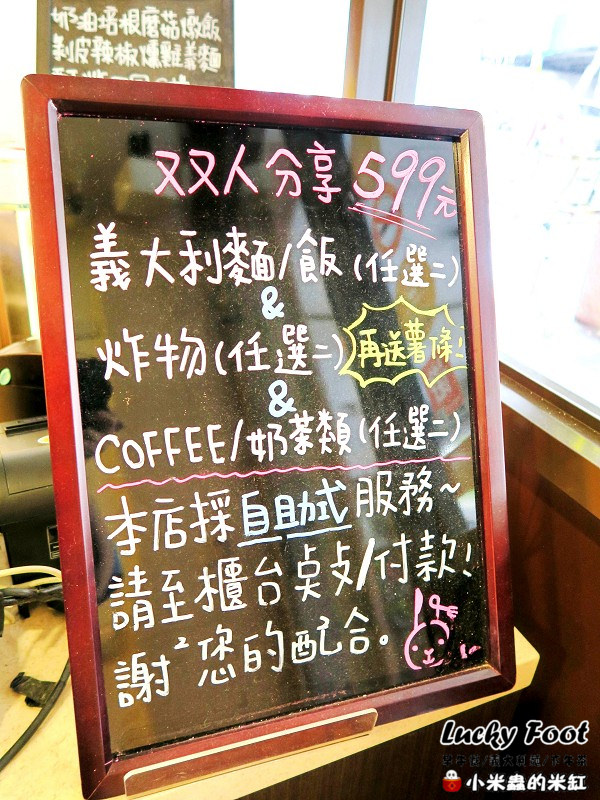 奶油培根磨菇燉飯
剝皮辣椒燻雞義麵
双双人分享599元
義大利麵/飯(任選二)
&
炸物(任選二)
再送薯條!
&
COFFEE/奶茶類(任選二)
本店採自助式服務~
請至櫃台点/付款!
謝²您的配合。
Lucky Foot
小米蟲的米缸